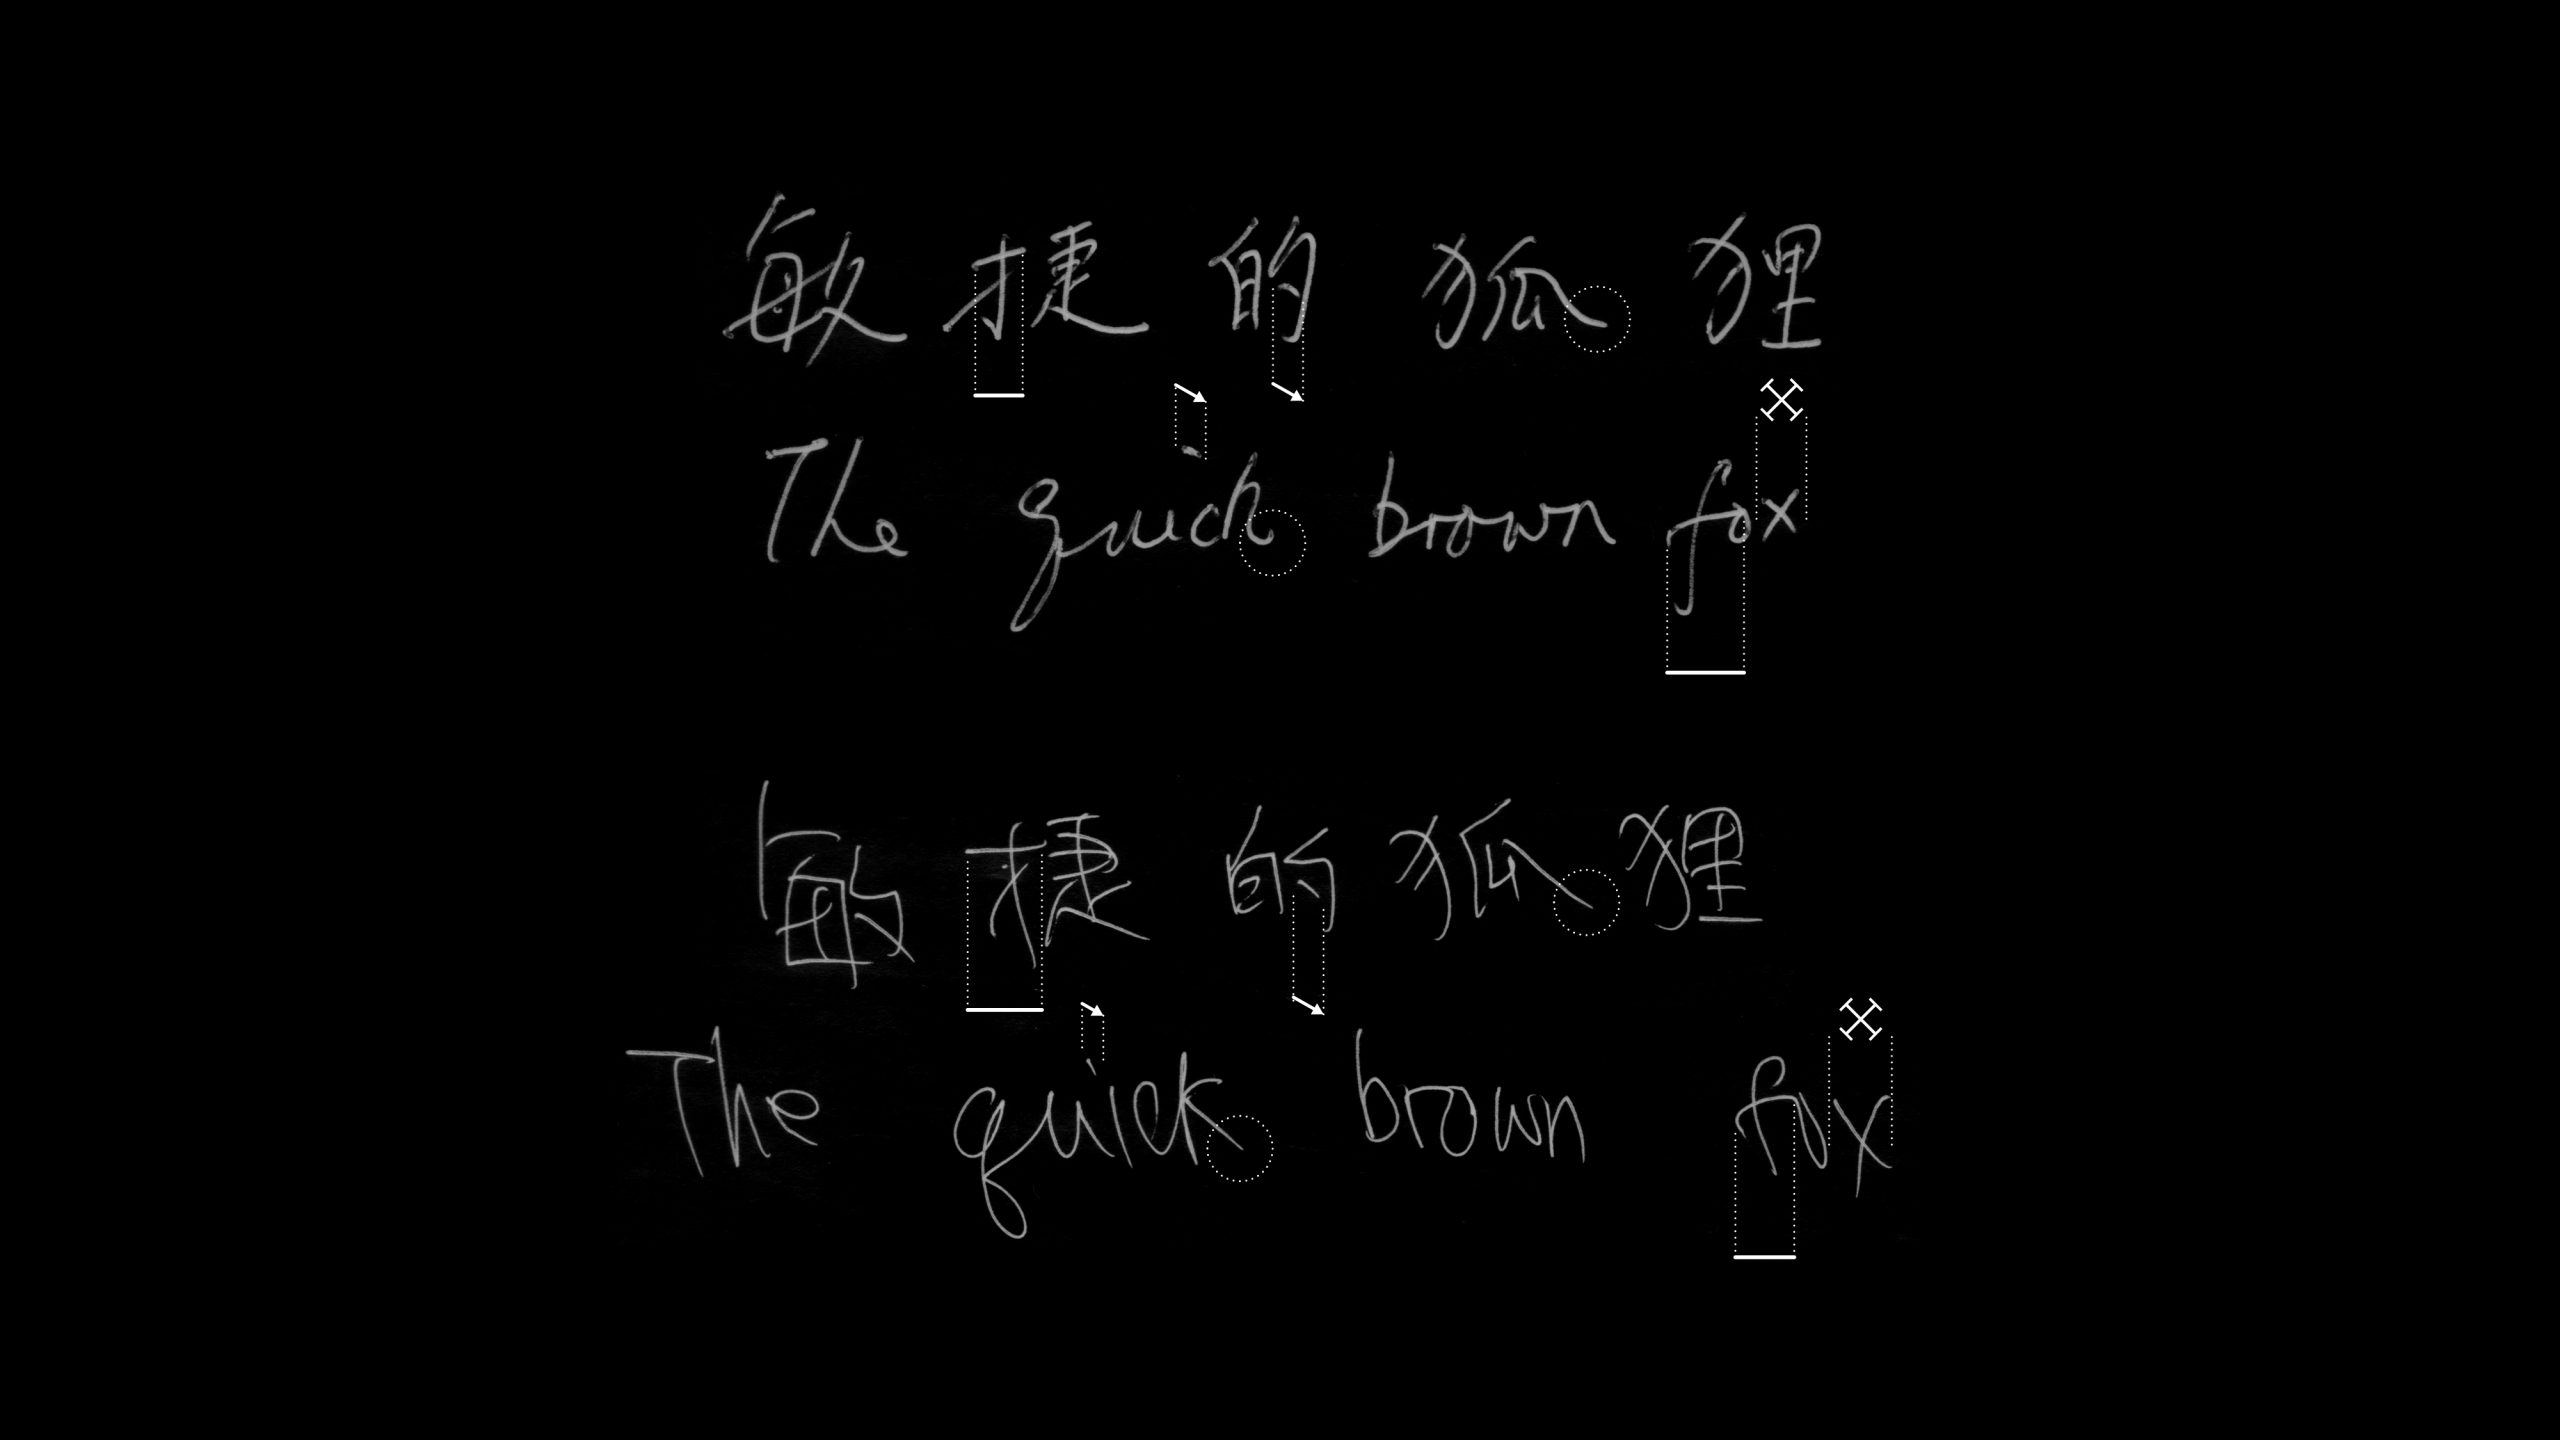 敏捷的狐狸
The quick brown fox
敏捷的狐狸
The quick brown fox